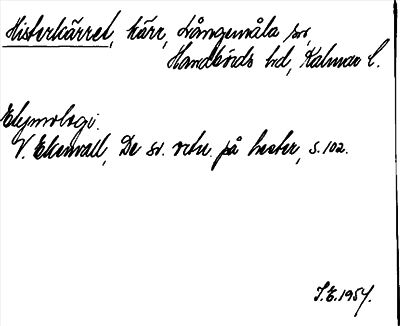 Misterkärret, kärr, Långemåla sn,
Handbörds hd, Kalmar l.
Etymologi:
V. Ekenvall, De sv. ortn. på hester, s. 102.
I.E. 1957.